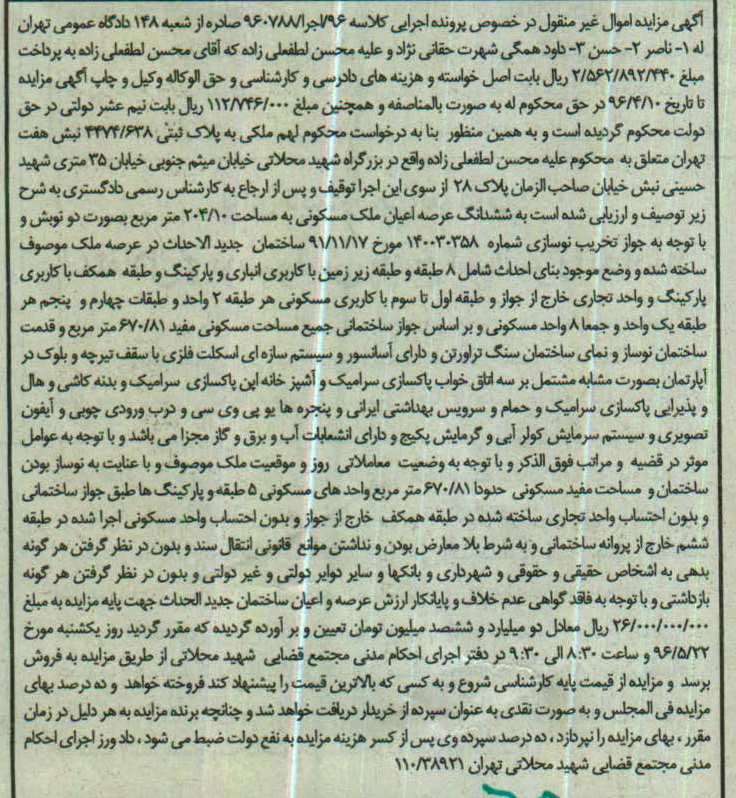 آگهی مزایده اموال غیر منقول در خصوص پرونده اجرایی کلاسه ۹۶/اجرا/۹۶۰۷۸۸ صادره از شعبه ۱۴۸ دادگاه عمومی تهران
له ۱- ناصر ۲- حسن ۳- داود همگی شهرت حقانی نژاد و علیه محسن لطفعلی زاده که آقای محسن لطفعلی زاده به پرداخت
مبلغ ۲/۵۶۲/۸۹۲/۴۴۰ ریال بابت اصل خواسته و هزینه های دادرسی و کارشناسی و حق الوکاله وکیل و چاپ آگهی مزایده
تا تاریخ ۹۶/۴/۱۰ در حق محکوم له به صورت بالمناصفه و همچنین مبلغ ۱۱۲/۷۴۶/۰۰۰ ریال بابت نیم عشر دولتی در حق
دولت محکوم گردیده است و به همین منظور بنا به درخواست محکوم لهم ملکی به پلاک ثبتی ۴۴۷۴/۶۳۸ نبش هفت
تهران متعلق به محکوم علیه محسن لطفعلی زاده واقع در بزرگراه شهید محلاتی خیابان میثم جنوبی خیابان ۳۵ متری شهید
حسینی نبش خیابان صاحب الزمان پلاک ۲۸ از سوی این اجرا توقیف و پس از ارجاع به کارشناس رسمی دادگستری به شرح
زیر توصیف و ارزیابی شده است به ششدانگ عرصه اعیان ملک مسکونی به مساحت ۲۰۴/۱۰ متر مربع بصورت دو نوبش و
با توجه به جواز تخریب نوسازی شماره ۱۴۰۰۳۰۳۵۸ مورخ ۹۱/۱۱/۱۷ ساختمان جدید الاحداث در عرصه ملک موصوف
ساخته شده و وضع موجود بنای احداث شامل ۸ طبقه و طبقه زیر زمین با کاربری انباری و پارکینگ و طبقه همکف با کاربری
پارکینگ و واحد تجاری خارج از جواز و طبقه اول تا سوم با کاربری مسکونی هر طبقه ۲ واحد و طبقات چهارم و پنجم هر
طبقه یک واحد و جمعا ۸ واحد مسکونی و بر اساس جواز ساختمانی جمیع مساحت مسکونی مفید ۶۷۰/۸۱ متر مربع و قدمت
ساختمان نوساز و نمای ساختمان سنگ تراورتن و دارای آسانسور و سیستم سازه ای اسکلت فلزی با سقف تیرچه و بلوک در
آپارتمان بصورت مشابه مشتمل بر سه اتاق خواب پاکسازی سرامیک و آشپز خانه اپن پاکسازی سرامیک و بدنه کاشی و هال
و پذیرایی پاکسازی سرامیک و حمام و سرویس بهداشتی ایرانی و پنجره ها یو پی وی سی و درب ورودی چوبی و آیفون
تصویری و سیستم سرمایش کولر آبی و گرمایش پکیج و دارای انشعابات آب و برق و گاز مجزا می باشد و با توجه به عوامل
موثر در قضیه و مراتب فوق الذکر و با توجه به وضعیت معاملاتی روز و موقعیت ملک موصوف و با عنایت به نوساز بودن
ساختمان و مساحت مفید مسکونی حدودا ۶۷۰/۸۱ متر مربع واحد های مسکونی ۵ طبقه و پارکینگ ها طبق جواز ساختمانی
و بدون احتساب واحد تجاری ساخته شده در طبقه همکف خارج از جواز و بدون احتساب واحد مسکونی اجرا شده در طبقه
ششم خارج از پروانه ساختمانی و به شرط بلا معارض بودن و نداشتن موانع قانونی انتقال سند و بدون در نظر گرفتن هر گونه
بدهی به اشخاص حقیقی و حقوقی و شهرداری و بانکها و سایر دوایر دولتی و غیر دولتی و بدون در نظر گرفتن هر گونه
بازداشتی و با توجه به فاقد گواهی عدم خلاف و پایانکار ارزش عرصه و اعیان ساختمان جدید الحداث جهت پایه مزایده به مبلغ
۲۶/۰۰۰/۰۰۰/۰۰۰ ریال معادل دو میلیارد و ششصد میلیون تومان تعیین و بر آورده گردیده که مقرر گردید روز یکشنبه مورخ
۹۶/۵/۲۲ و ساعت ۸:۳۰ الی ۹:۳۰ در دفتر اجرای احکام مدنی مجتمع قضایی شهید محلاتی از طریق مزایده به فروش
برسد و مزایده از قیمت پایه کارشناسی شروع و به کسی که بالاترین قیمت را پیشنهاد کند فروخته خواهد و ده درصد بهای
مزایده فی المجلس و به صورت نقدی به عنوان سپرده از خریدار دریافت خواهد شد و چنانچه برنده مزایده به هر دلیل در زمان
مقرر ، بهای مزایده را نپردازد ، ده درصد سپرده وی پس از کسر هزینه مزایده به نفع دولت ضبط می شود ، داد ورز اجرای احکام
مدنی مجتمع قضایی شهید محلاتی تهران ۱۱۰/۳۸۹۲۱